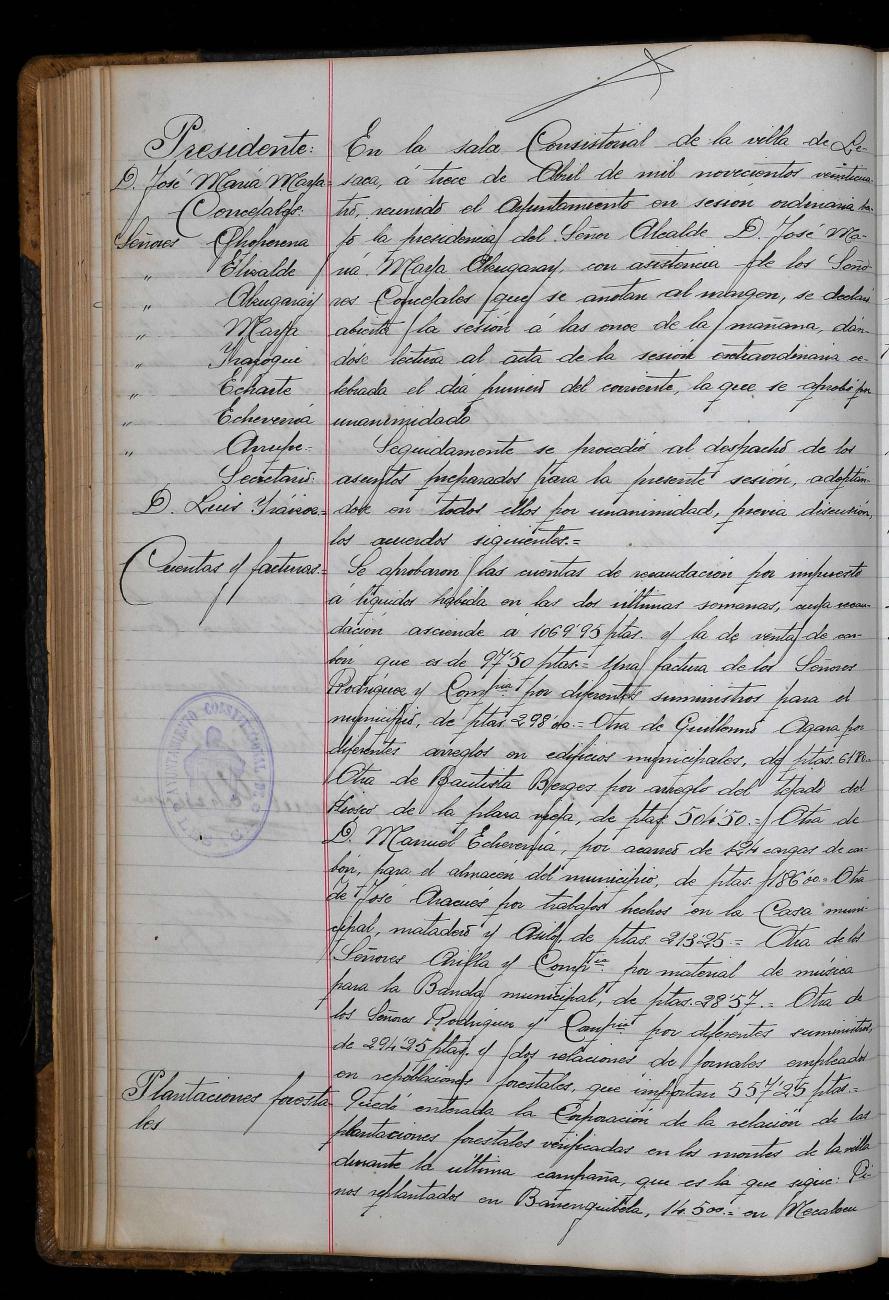 Presidente:
D. José María Marfa=
Concejales:
Señores Choperena
„ Elizalde
„ Abeugaray
„ Marfa
„ Irazoqui
„ Echarte
„ Echeverría
„ Arrupe.
Secretario:
D. Luis
En la sala Consistorial de la villa de Le-
saca, á trece de Abril de mil novecientos veinticua-
tro, reunido el Ayuntamiento en sesión ordinaria ba-
jo la presidencia del Señor Alcalde D. José Ma-
ría Marfa Abeugaray, con asistencia de los Seño-
res Concejales que se anotan al margen, se declaró
abierta la sesión á las once de la mañana, dán-
dose lectura al acta de la sesión extraordinaria ce-
lebrada el día primero del corriente, la que se aprobó por
unanimidad.
Seguidamente se procedió al despacho de los
asuntos preparados para la presente sesión, adoptán-
dose en todos ellos por unanimidad, previa discusión,
los acuerdos siguientes.=
Cuentas y facturas.=
Se aprobaron las cuentas de recaudación por impuesto
a líquidos habida en las dos últimas semanas, cuya recau-
dación asciende á 1069'95 ptas. y la de venta de car-
bón que es de 97'50 ptas.= Una factura de los Señores
Rodríguez y Compñía por diferentes suministros para el
municipio, de ptas 298'00.= Otra de Guillermo Agara por
diferentes arreglos en edificios municipales, de ptas.
Otra de Bautista Berges por arreglo del tejado del
Kiosco de la plaza vieja, de ptas 504'50.= Otra de
D. Manuel Echeverría, por acarreo de 124 cargas de car-
bón, para el almacén del municipio, de ptas. 186'00.= Otra
de José Aracués por trabajos hechos en la Casa muni-
cipal, matadero y Asilo, de ptas 213'25.= Otra de los
Señores Arilla y Compñía por material de música
para la Banda municipal, de ptas. 28'57.= Otra de
los Señores Rodríguez y Compñía por diferentes suministros,
de 294'25 ptas. y dos relaciones de jornales empleados
en repoblaciones forestales, que importan 557'25 ptas.=
Plantaciones foresta-
les
Quedó enterada la Corporación de la relación de las
plantaciones forestales verificadas en los montes de la villa
durante la última campaña, que es la que sigue: Pi-
nos replantados en Barrenguibela, 14.500.= en
AYUNTAMIENTO CONSTITUCIONAL DE
LESACA